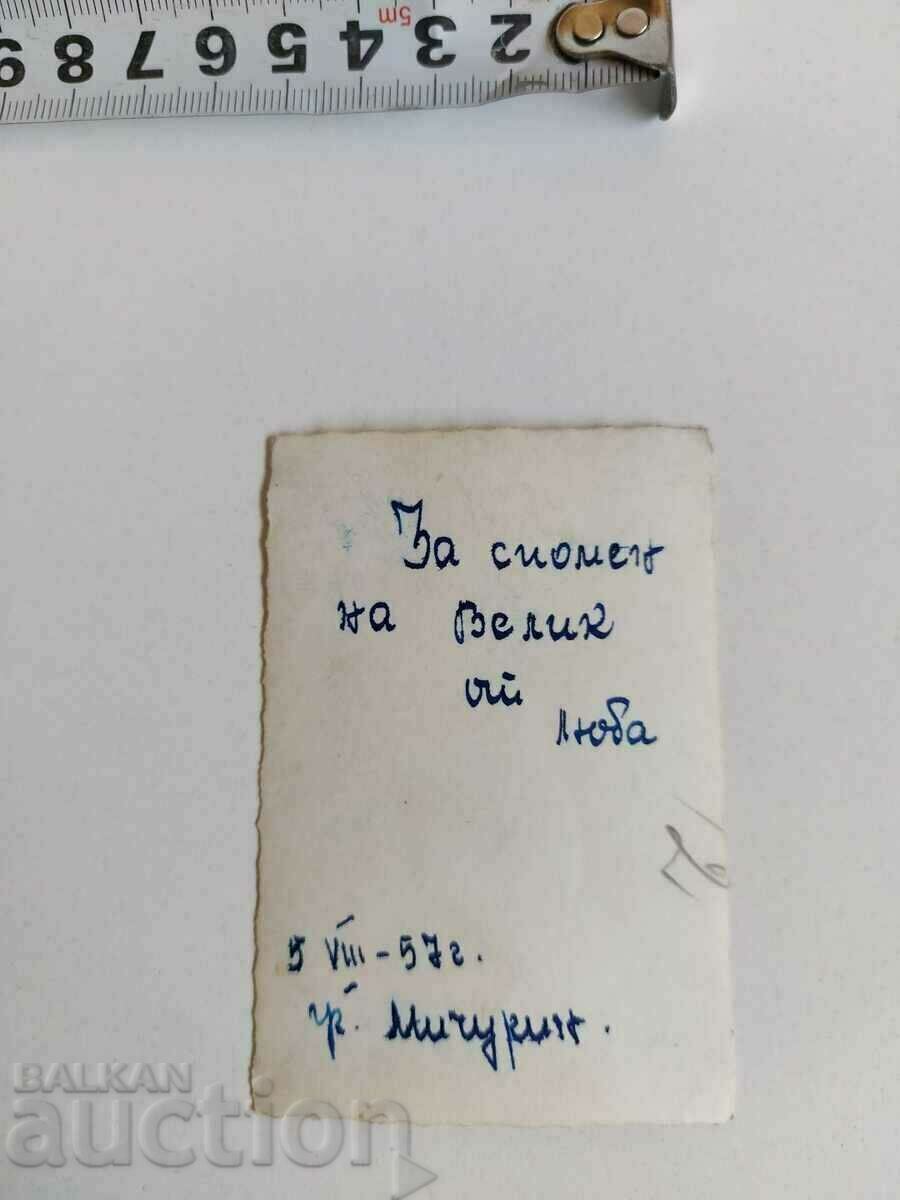 2 3 4 5 6 7 8 9
5m
За спомен
на Велик
от
Люба
5 VIII - 57 г.
гр. Мичурин.
BALKAN
auction